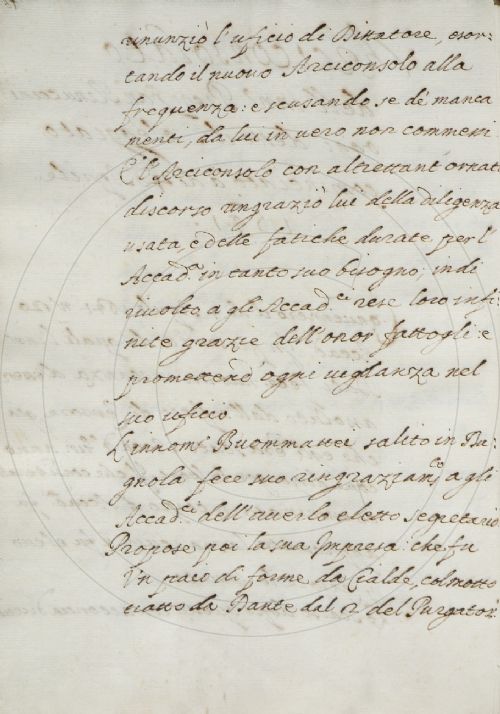 rinunziò l'uficio di Dittatore, esor-
tando il nuovo Arciconsolo alla
frequenza: e scusando se de manca
menti, da lui in vero non commessi
E l'Arciconsolo con altrettant'ornato
discorso ringraziò lui della diligenza
usata, e delle fatiche durate per l'
Accad.ª in tanto suo bisogno; indi
rivolto a gli Accad.ci rese loro infi
nite grazie dell'onor fattogli: e
promettendo ogni vigilanza nel
suo uficio
L'innom: Buommattei salito in Bu-
gnola fece suo ringraziam.to a gli
Accad.ci dell'averlo eletto segretario
Propose poi la sua Impresa che fu
Un paio di forme da Cialde, col motto
tratto da Dante dal 2 del Purgator.